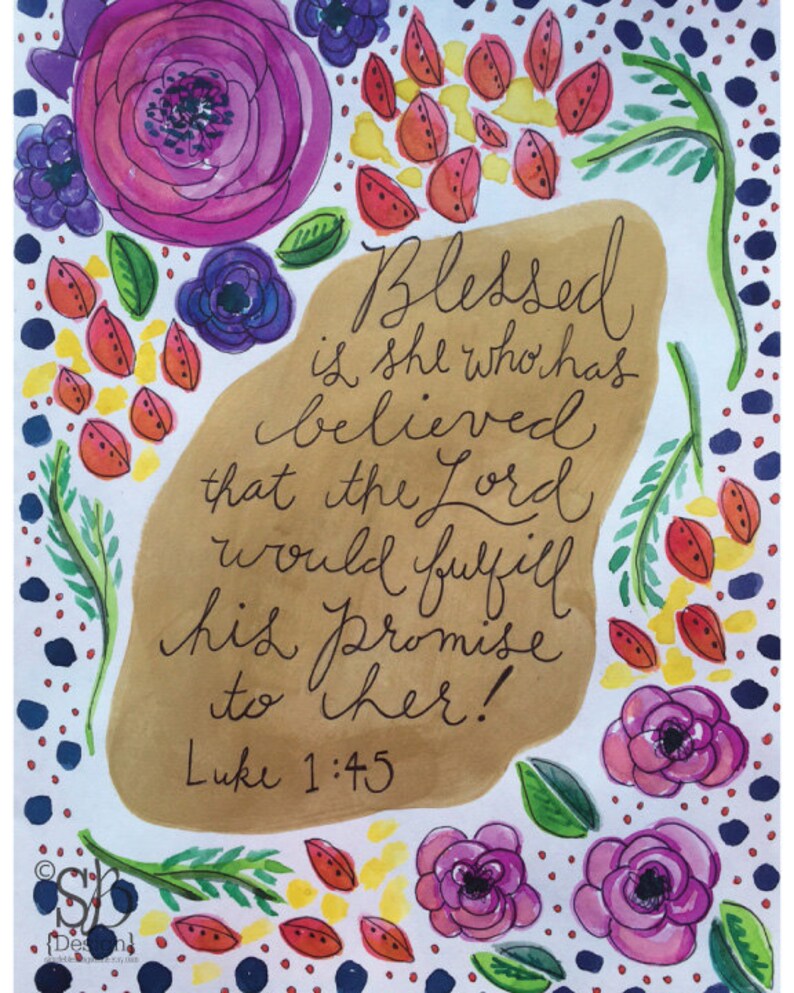 Blessed
is she who has
believed
that the Lord
would fulfill
his promise
to her!
Luke 1:45
©
SB
{Design}